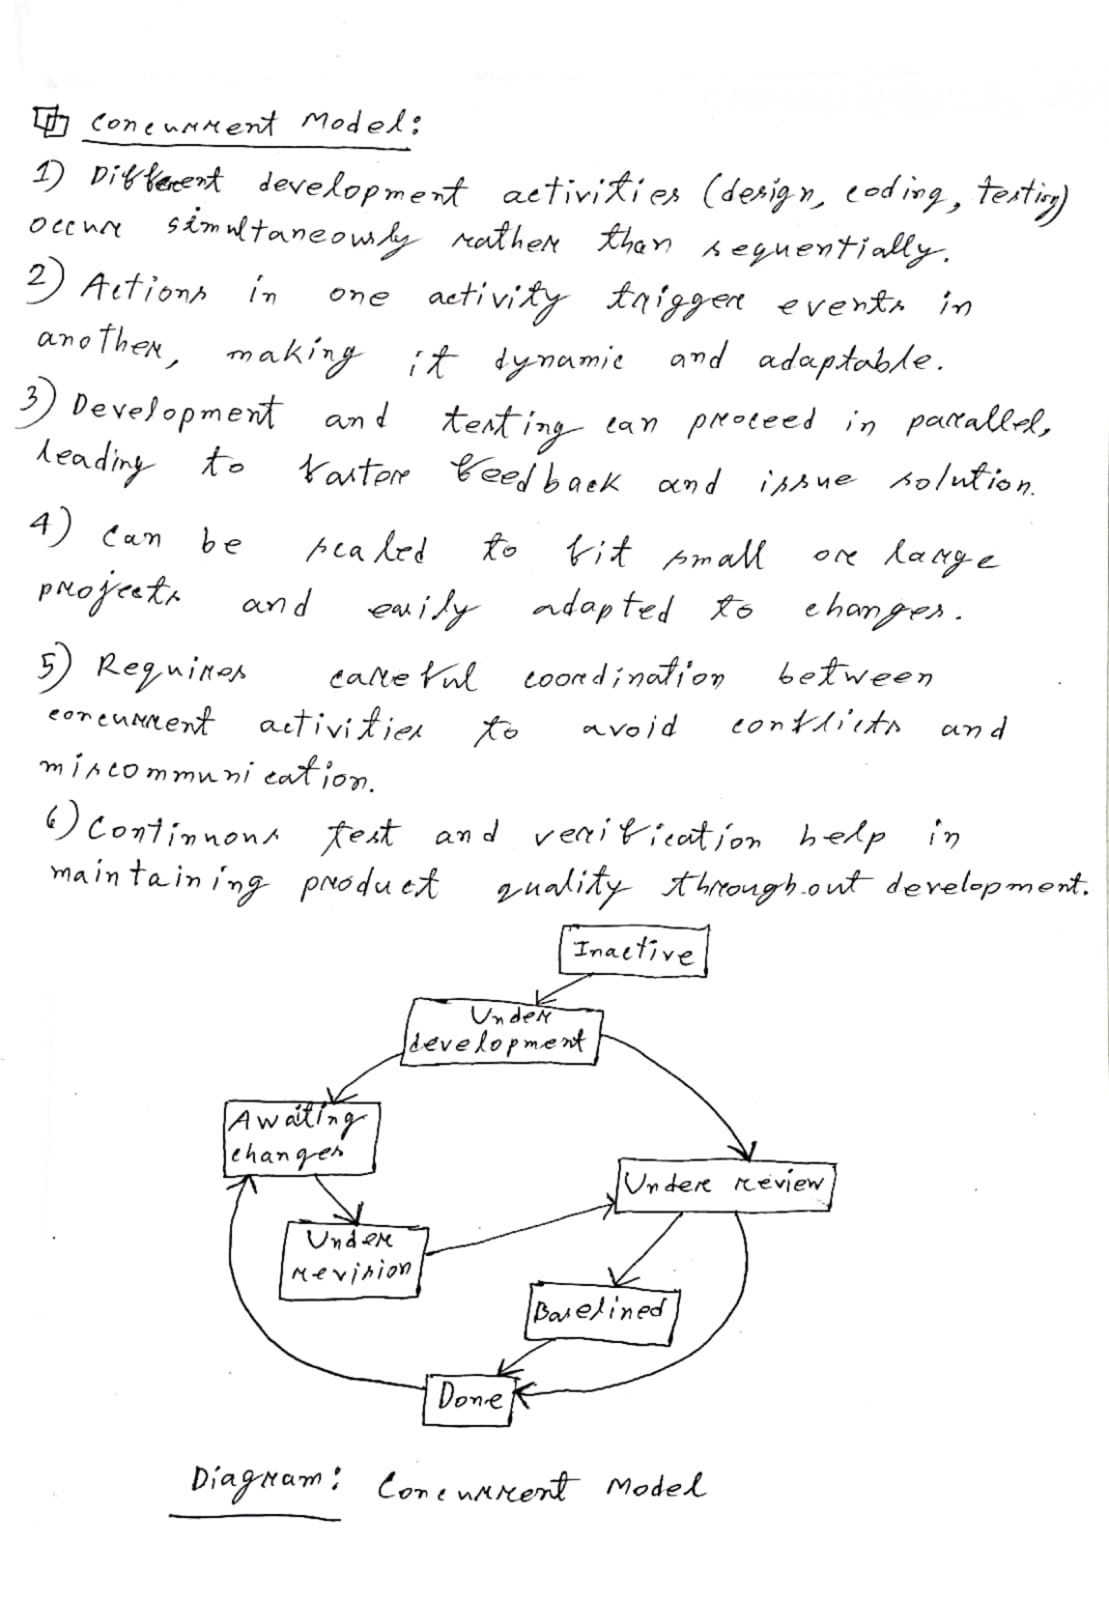 Concurrent Model:
1) Different development activities (design, coding, testing)
occur simultaneously rather than sequentially.
2) Actions in one activity trigger events in
another, making it dynamic and adaptable.
3) Development and testing can proceed in parallel,
leading to faster feedback and issue solution.
4) Can be scaled to fit small or large
projects and easily adapted to changes.
5) Requires careful coordination between
concurrent activities to avoid conflicts and
miscommunication.
6) Continuous test and verification help in
maintaining product quality throughout development.
Inactive
Under
development
Awaiting
changes
Under review
Under
revision
Baselined
Done
Diagram: Concurrent Model